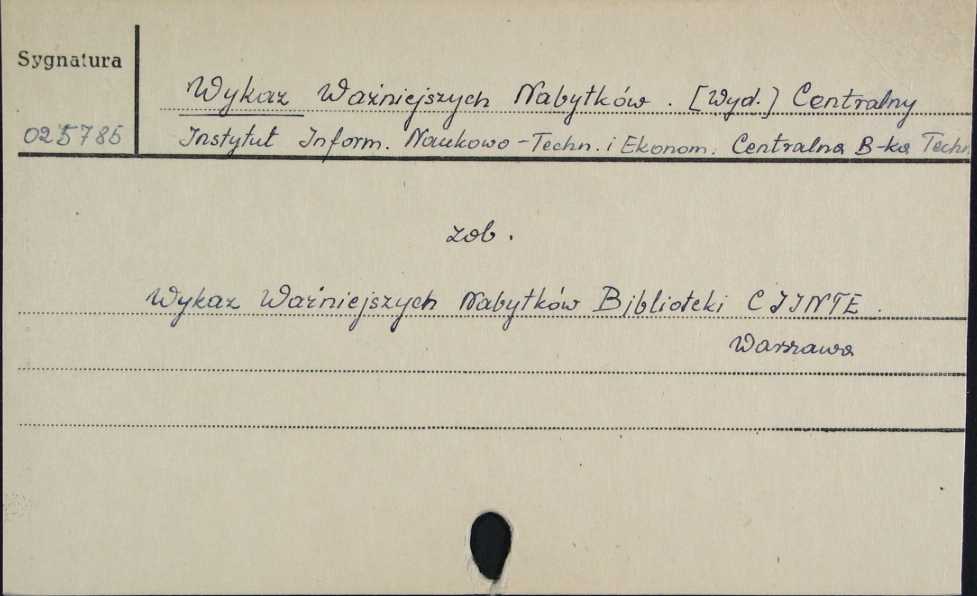 Sygnatura
Wykaz Ważniejszych Nabytków. [Wyd.] Centralny
025785 Instytut Inform. Naukowo-Techn. i Ekonom. Centralna B-ka Techn.
zob.
Wykaz Ważniejszych Nabytków Biblioteki CIINTE.
Warszawa